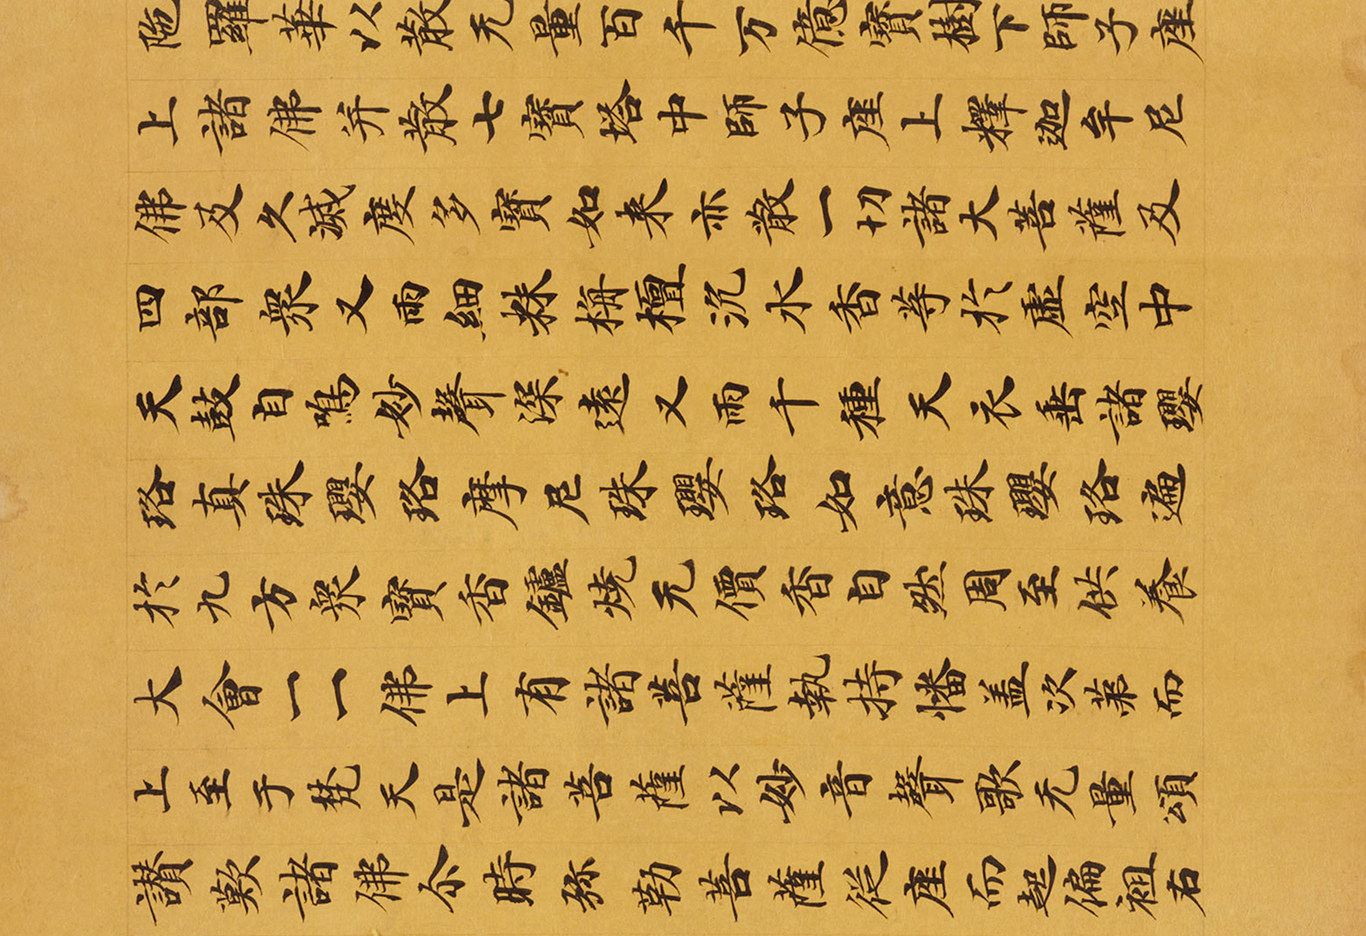 陁羅華以散无量百千万億寶樹下師子座
上諸佛并散七寶塔中師子座上釋迦牟尼
佛及久滅度多寶如来亦散一切諸大菩薩及
四部衆又雨細粖栴檀沉水香等於虛空中
天鼓自鳴妙聲深遠又雨千種天衣垂諸瓔
珞真珠瓔珞摩尼珠瓔珞如意珠瓔珞遍
於九方衆寶香鑪燒无價香自然周至供養
大會一一佛上有諸菩薩執持幡盖次第而
上至于梵天是諸菩薩以妙音聲歌无量頌
讃歎諸佛尒時弥勒菩薩從座而起偏袒右